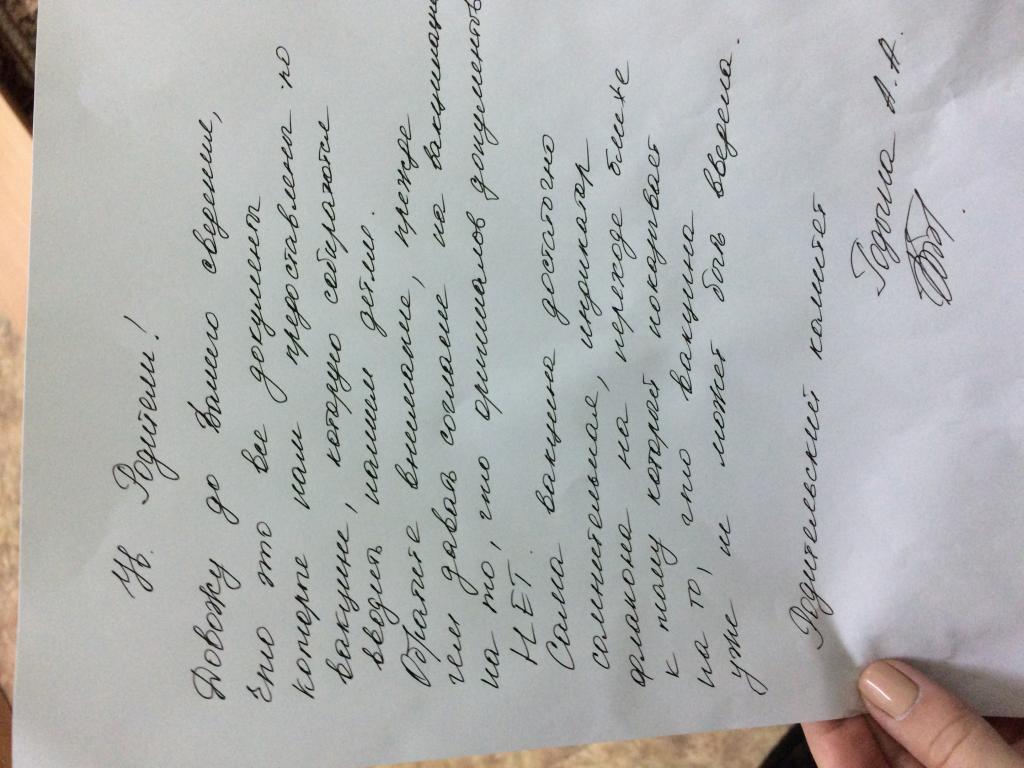 Ув. Родители!
Довожу до Вашего сведения,
что это все документы
которые нам предоставлены по
вакцине, которую собираются
вводить нашим детям.
Обратите внимание, прежде
чем давать согласие на вакцинацию
на то, что оригиналов документов
НЕТ.
Сама вакцина достаточно
сомнительная, индикатор
флакона на, переходе ближе
к тому который показывает
на то, что вакцина
уже не может быть введена.
Родительский комитет
Годына А.А.